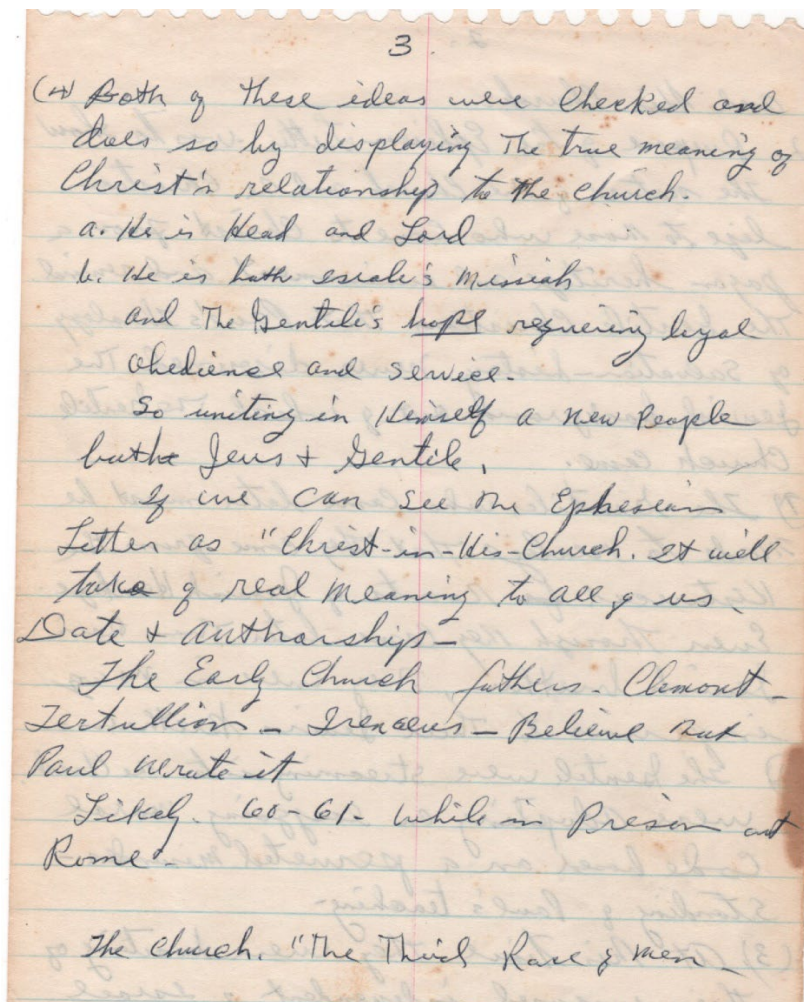 3.
(4) Both of these ideas were Checked and
does so by displaying The true meaning of
Christ's relationship to the Church.
a. He is Head and Lord
b. He is both esrale's Missiah
and The Gentile's hope requiring loyal
obedience and service.
So uniting in Himself a new People
both Jews + Gentile.
If we can see the Ephesian
Letter as "Christ-in-His-Church. It will
take of real meaning to all of us.
Date + Authorship-
The Early Church fathers - Clemont -
Tertullion - Irenaeus - Believe that
Paul wrote it
Likely. 60-61- while in Prison at
Rome.
The Church. "The Third Race of men -